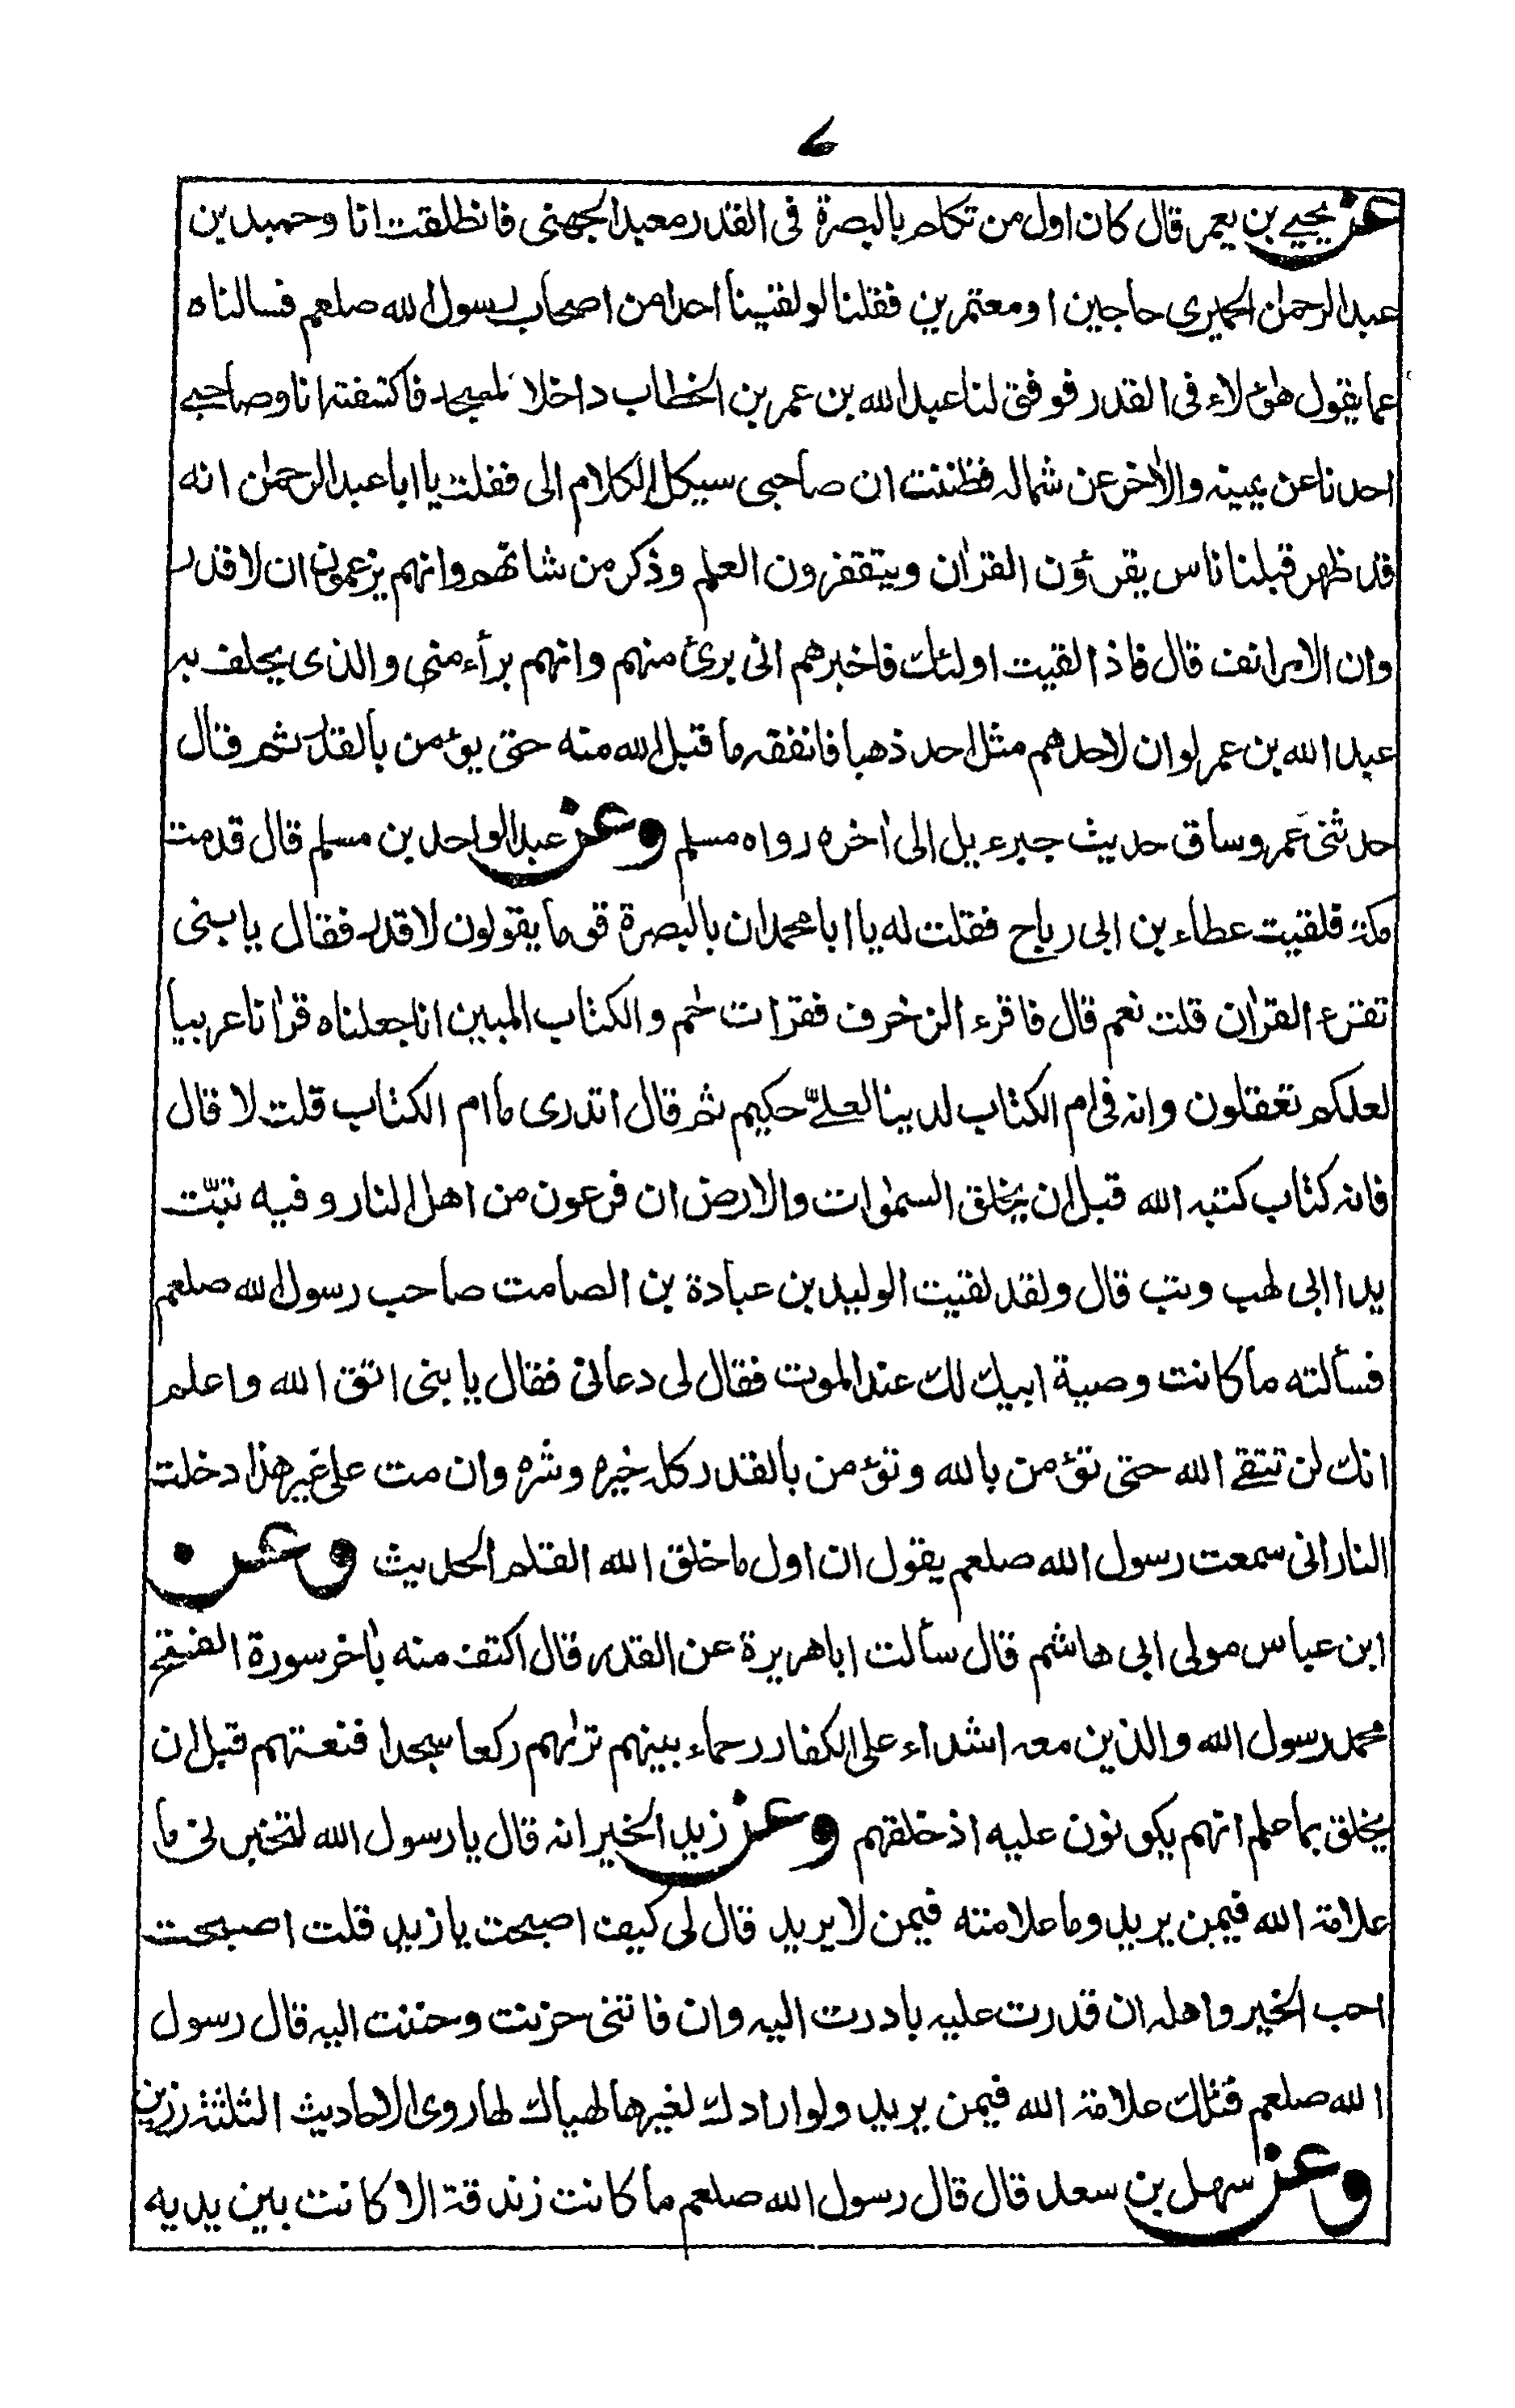 ۷
عن یحیی بن یعمر قال کان اول من تکلم بالبصرة فی القدر معبد الجهنی فانطلقت انا وحمید بن
عبد الرحمٰن الحمیری حاجین او معتمرین فقلنا لو لقینا احدا من اصحاب رسول الله صلعم فسالناه
عما یقول هٰؤلاء فی القدر فوفق لنا عبد الله بن عمر بن الخطاب داخلا المسجد فاکتنفته انا وصاحبی
احدنا عن یمینه والاٰخر عن شماله فظننت ان صاحبی سیکل الکلام الی فقلت یا ابا عبد الرحمٰن انه
قد ظهر قبلنا ناس یقرؤن القراٰن ویتقفرون العلم وذکر من شانهم وانهم یزعمون ان لا قدر
وان الامر انف قال فاذا لقیت اولئک فاخبرهم انی برئ منهم وانهم برآء منی والذی یحلف به
عبد الله بن عمر لو ان لاحدهم مثل احد ذهبا فانفقه ما قبل الله منه حتی یؤمن بالقدر ثم قال
حدثنی عمر وساق حدیث جبرءیل الی اٰخره رواه مسلم وعن عبد الواحد بن مسلم قال قدمت
مکة فلقیت عطاء بن ابی رباح فقلت له یا ابا محمد ان بالبصرة قوما یقولون لا قدر فقال یا بنی
تقرء القراٰن قلت نعم قال فاقرء الزخرف فقرات حٰم والکتاب المبین انا جعلناه قراٰنا عربیا
لعلکم تعقلون وانه فی ام الکتاب لدینا لعلیّ حکیم ثم قال اتدری ما ام الکتاب قلت لا قال
فانه کتاب کتبه الله قبل ان یخلق السمٰوات والارض ان فرعون من اهل النار وفیه تبّت
یدا ابی لهب وتب قال ولقد لقیت الولید بن عبادة بن الصامت صاحب رسول الله صلعم
فسألته ما کانت وصیة ابیک لک عند الموت فقال لی دعانی فقال یا بنی اتق الله واعلم
انک لن تتقی الله حتی تؤمن بالله وتؤمن بالقدر کله خیره وشره وان مت علی غیر هذا دخلت
النار انی سمعت رسول الله صلعم یقول ان اول ما خلق الله القلم الحدیث وعن
ابن عباس مولی ابی هاشم قال سألت ابا هریرة عن القدر قال اکتف منه باٰخر سورة الفتح
محمد رسول الله والذین معه اشداء علی الکفار رحماء بینهم تراٰهم رکعا سجدا فنعتهم قبل ان
یخلق بما علم انهم یکونون علیه اذ خلقهم وعن زید الخیر انه قال یا رسول الله لتخبرنی ما
علامة الله فیمن یرید وما علامته فیمن لا یرید قال لی کیف اصبحت یا زید قلت اصبحت
احب الخیر واهله ان قدرت علیه بادرت الیه وان فاتنی حزنت وحننت الیه قال رسول
الله صلعم فتلک علامة الله فیمن یرید ولو ارادک لغیرها لهیاک لها روی الاحادیث الثلثة رزین
وعن سهل بن سعد قال قال رسول الله صلعم ما کانت زندقة الا کانت بین یدیه